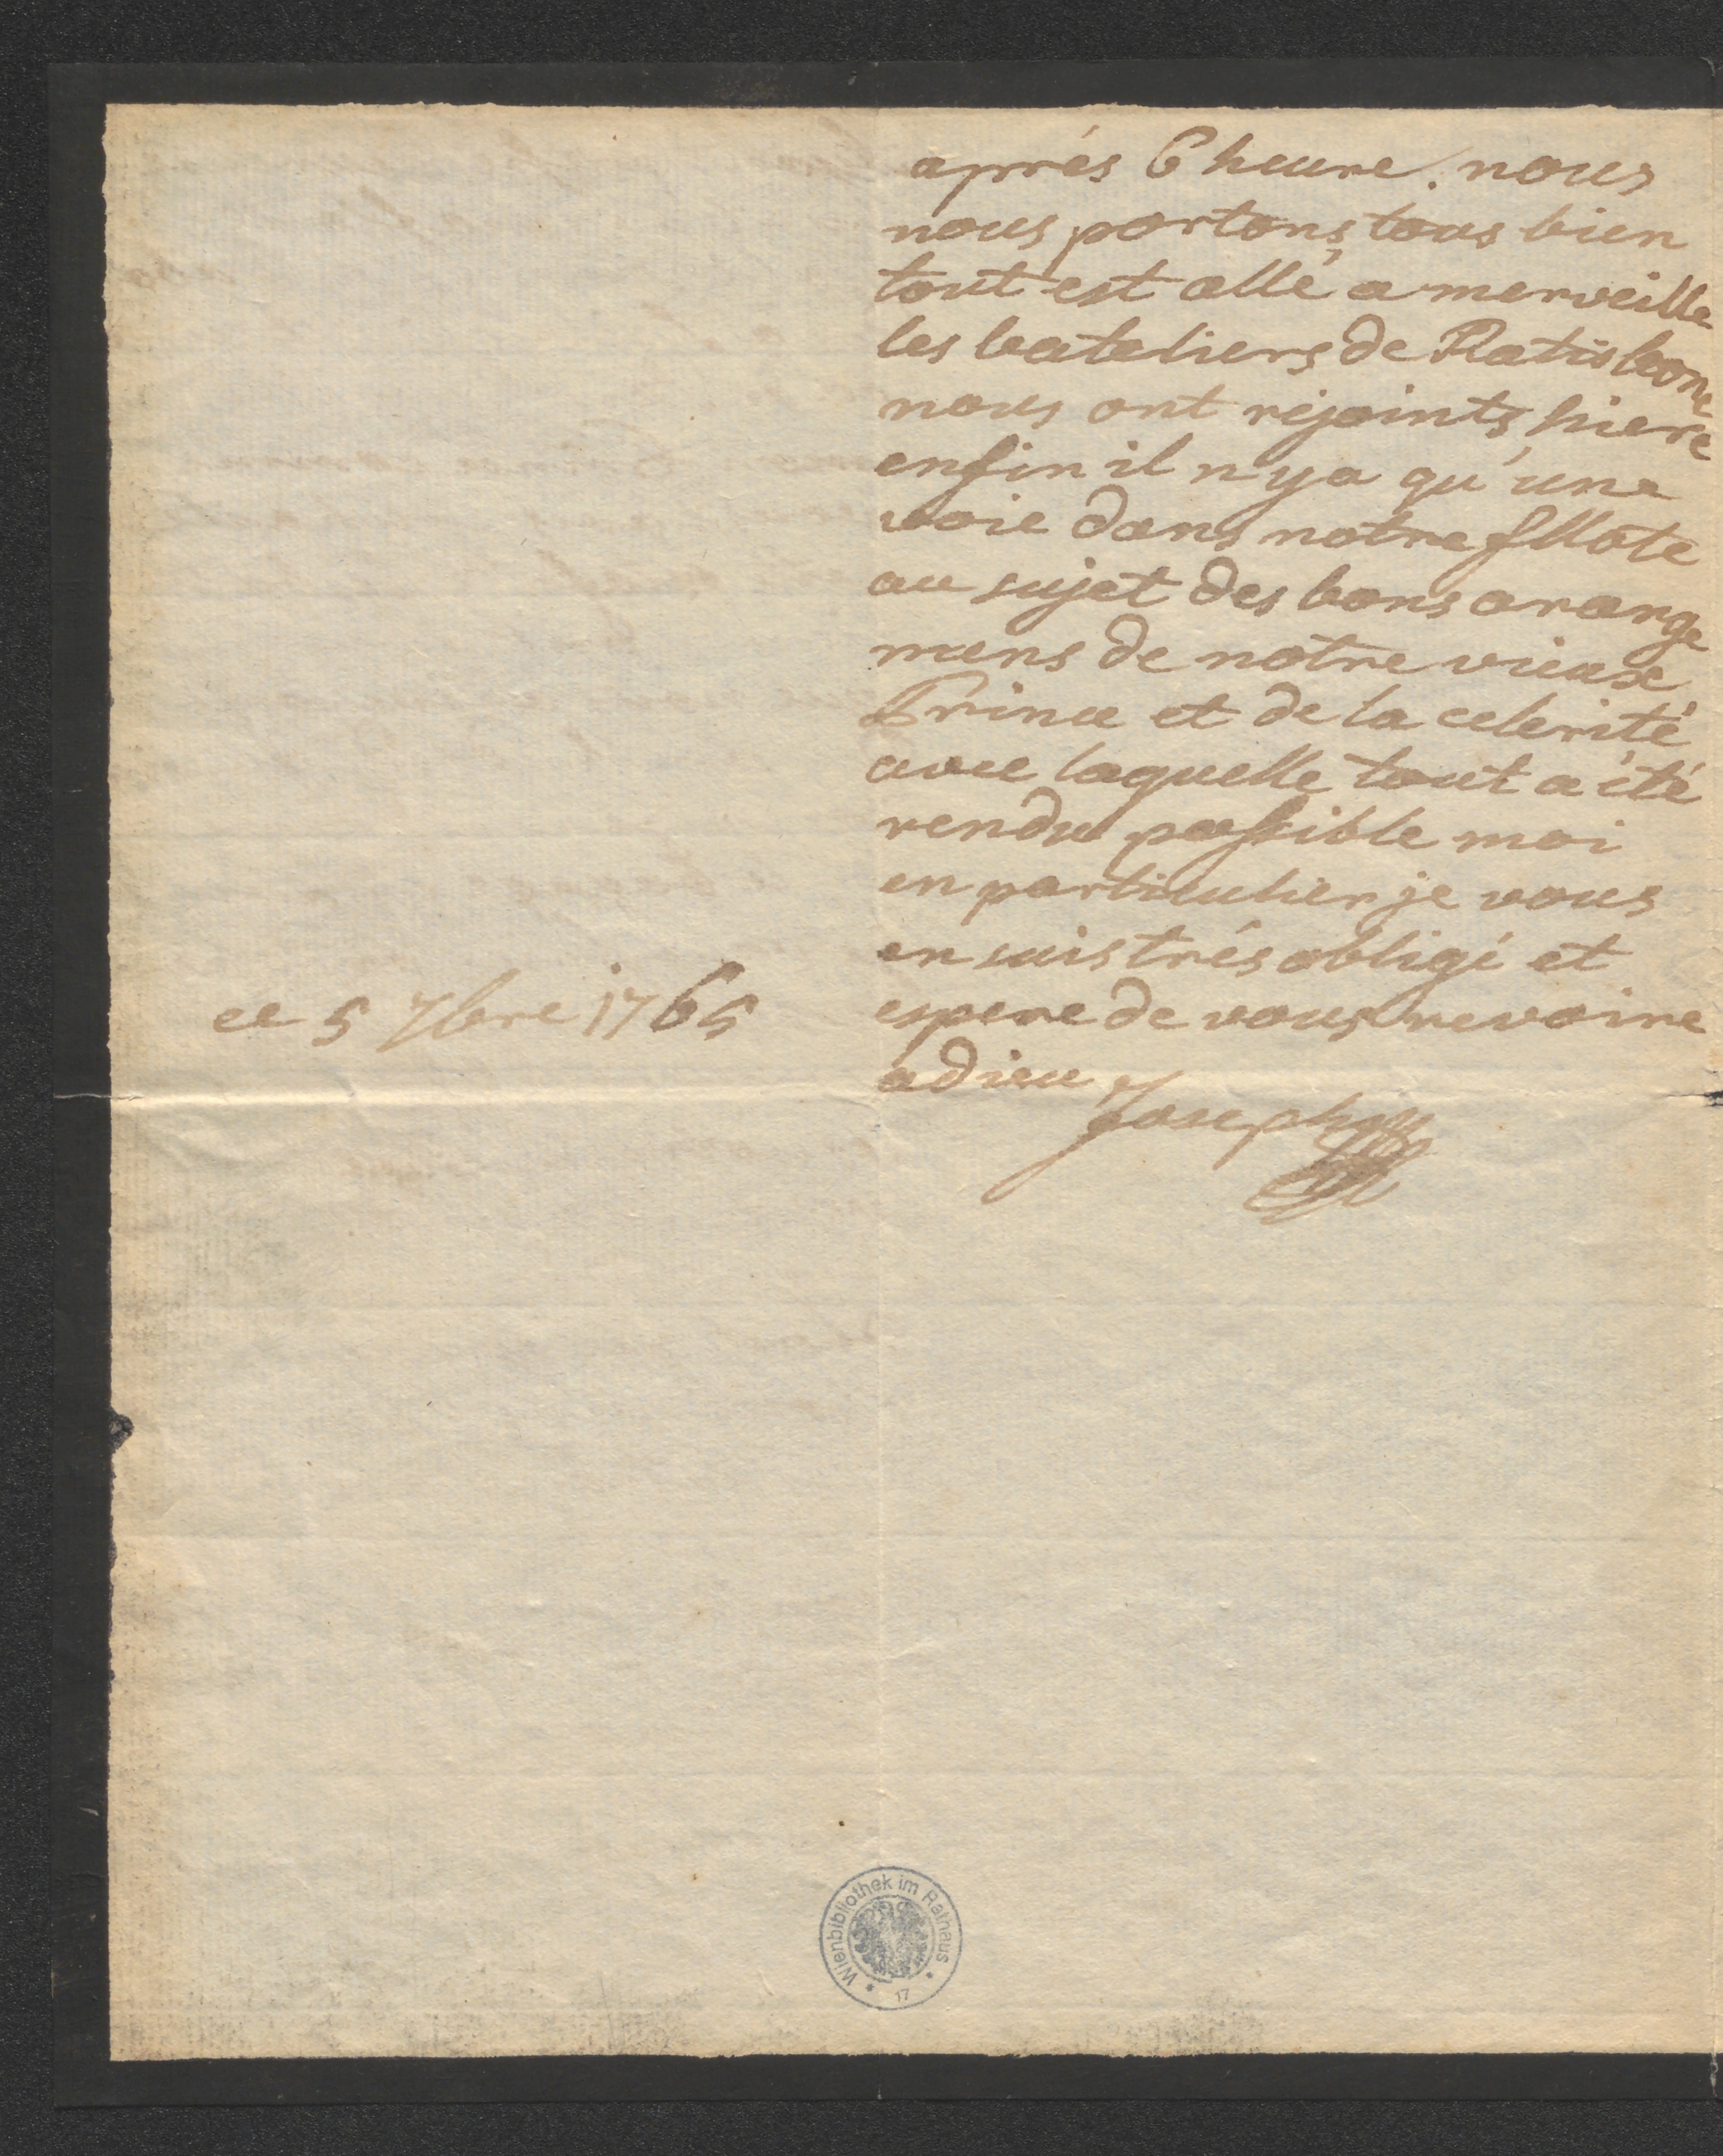 aprés 6 heure. nous
nous portons tous bien
tout est allé a merveille
les bateliers de Ratisbone
nous ont rejoints hiere
enfin il n'y a qu'une
voie dans notre fllote
au sujet des bons arange
mens de notre vieux
Prince et de la celerité
avec laquelle tout a été
rendu possible moi
en particulier je vous
en suis trés obligé et
espere de vous revoire
adieu
Joseph
ce 5 7bre 1765
Wienbibliothek im Rathaus
17